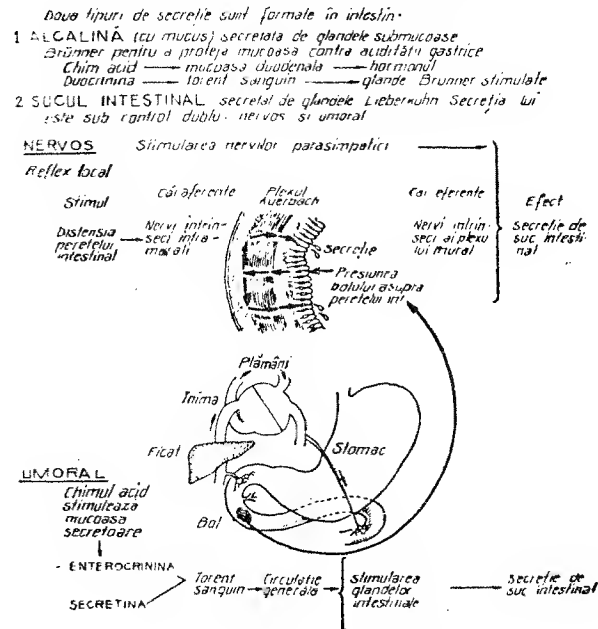 Două tipuri de secreție sunt formate în intestin.
1 ALCALINĂ (cu mucus) secretată de glandele submucoase
Brünner pentru a proteja mucoasa contra acidității gastrice
Chim acid mucoasa duodenala hormonul
Duocrinina torent sanguin glande Brunner stimulate
2 SUCUL INTESTINAL secretat de glandele Lieberkuhn Secreția lui
este sub control dublu. nervos si umoral
NERVOS Stimularea nervilor parasimpatici
Reflex local
Stimul
Căi aferente
Plexul
Auerbach
Căi eferente
Efect
Distensia
peretelui
intestinal
Nervi intrin-
seci intra-
murali
Secreție
Presiunea
bolului asupra
peretelui int
Nervi intrin-
seci ai plexu
lui mural
Secreție de
suc intesti-
nal
Plămâni
Inima
Ficat
Stomac
Bol
UMORAL
Chimul acid
stimulează
mucoasa
secretoare
- ENTEROCRININA
SECRETINA
Torent
sanguin
Circulatie
generala
Stimularea
glandelor
intestinale
Secreție de
suc intestinal